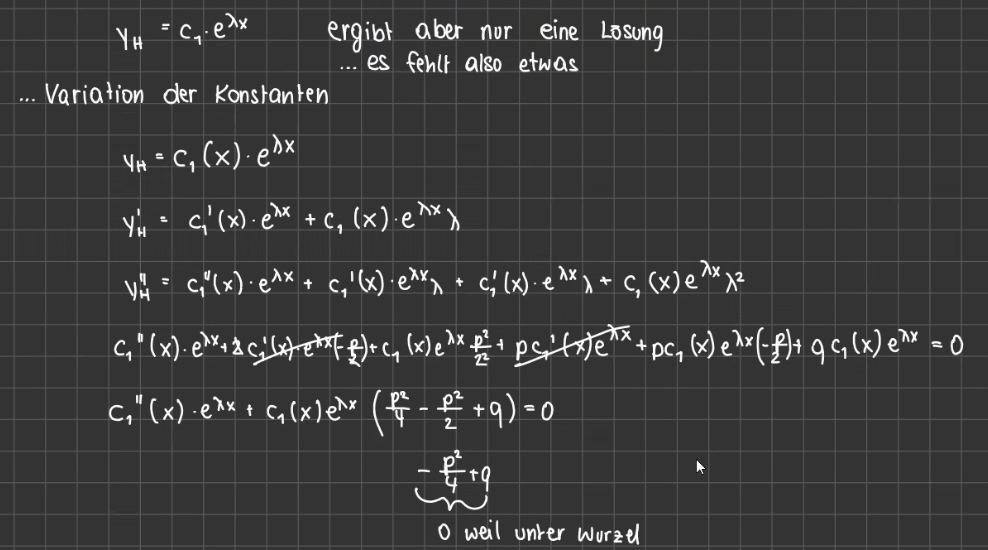 y_H = c₁·e^λx ergibt aber nur eine Lösung
... es fehlt also etwas
... Variation der Konstanten
y_H = c₁(x)·e^λx
y_H' = c₁'(x)·e^λx + c₁(x)·e^λx λ
y_H'' = c₁''(x)·e^λx + c₁'(x)·e^λx λ + c₁'(x)·e^λx λ + c₁(x)e^λx λ²
c₁''(x)·e^λx + 2c₁'(x)·e^λx(-p/2) + c₁(x)e^λx p²/2² + pc₁'(x)e^λx + pc₁(x)e^λx(-p/2) + qc₁(x)e^λx = 0
c₁''(x)·e^λx + c₁(x)e^λx (p²/4 - p²/2 + q) = 0
- p²/4 + q
0 weil unter Wurzel